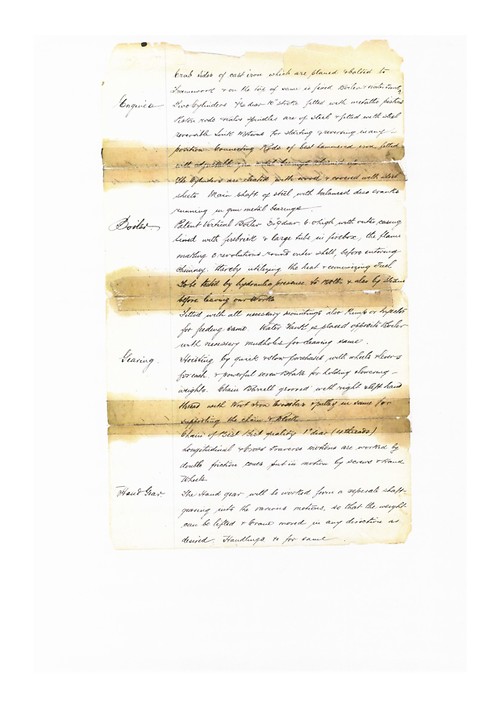 Crab sides of cast iron which are planed & bolted to
framework & on the top of same is fixed Boiler
Engines Two Cylinders dia stroke fitted with metallic pistons
rods & valve spindles are of steel & fitted with steel
reversible Link Motions for starting & reversing
position Connecting Rods of best hammered iron fitted
with
The Cylinders are with wood & covered with steel
sheets. Main shaft of steel with balanced disc cranks
running in gun metal bearings.
Boiler Patent Vertical Boiler dia high with outer casing
lined with firebrick & large tube in firebox, the flame
making 2 revolutions round outer shell, before entering
chimney thereby utilizing the heat & economizing Fuel
To be tested by hydraulic pressure to & also by Steam
before leaving our Works
Fitted with all necessary mountings also Pump or Injector
for feeding same. Water Tank is placed opposite Boiler
with necessary mudholes for cleaning same.
Gearing Hoisting by quick & slow purchases with wheels
for each & powerful for holding & lowering
weights. Chain Barrell grooved with right & left hand
thread with Wrot Iron & pulley in same for
supporting the chain & Block
Chain of Best Best quality 1" diar
Longitudinal & Cross Traverse motions are worked by
double friction cones put in motion by screws & Hand
Wheels
Hand Gear The Hand gear will be worked from a seperate shaft
gearing into the various motions, so that the weight
can be lifted & Crane moved in any direction as
desired. Handlings &c for same